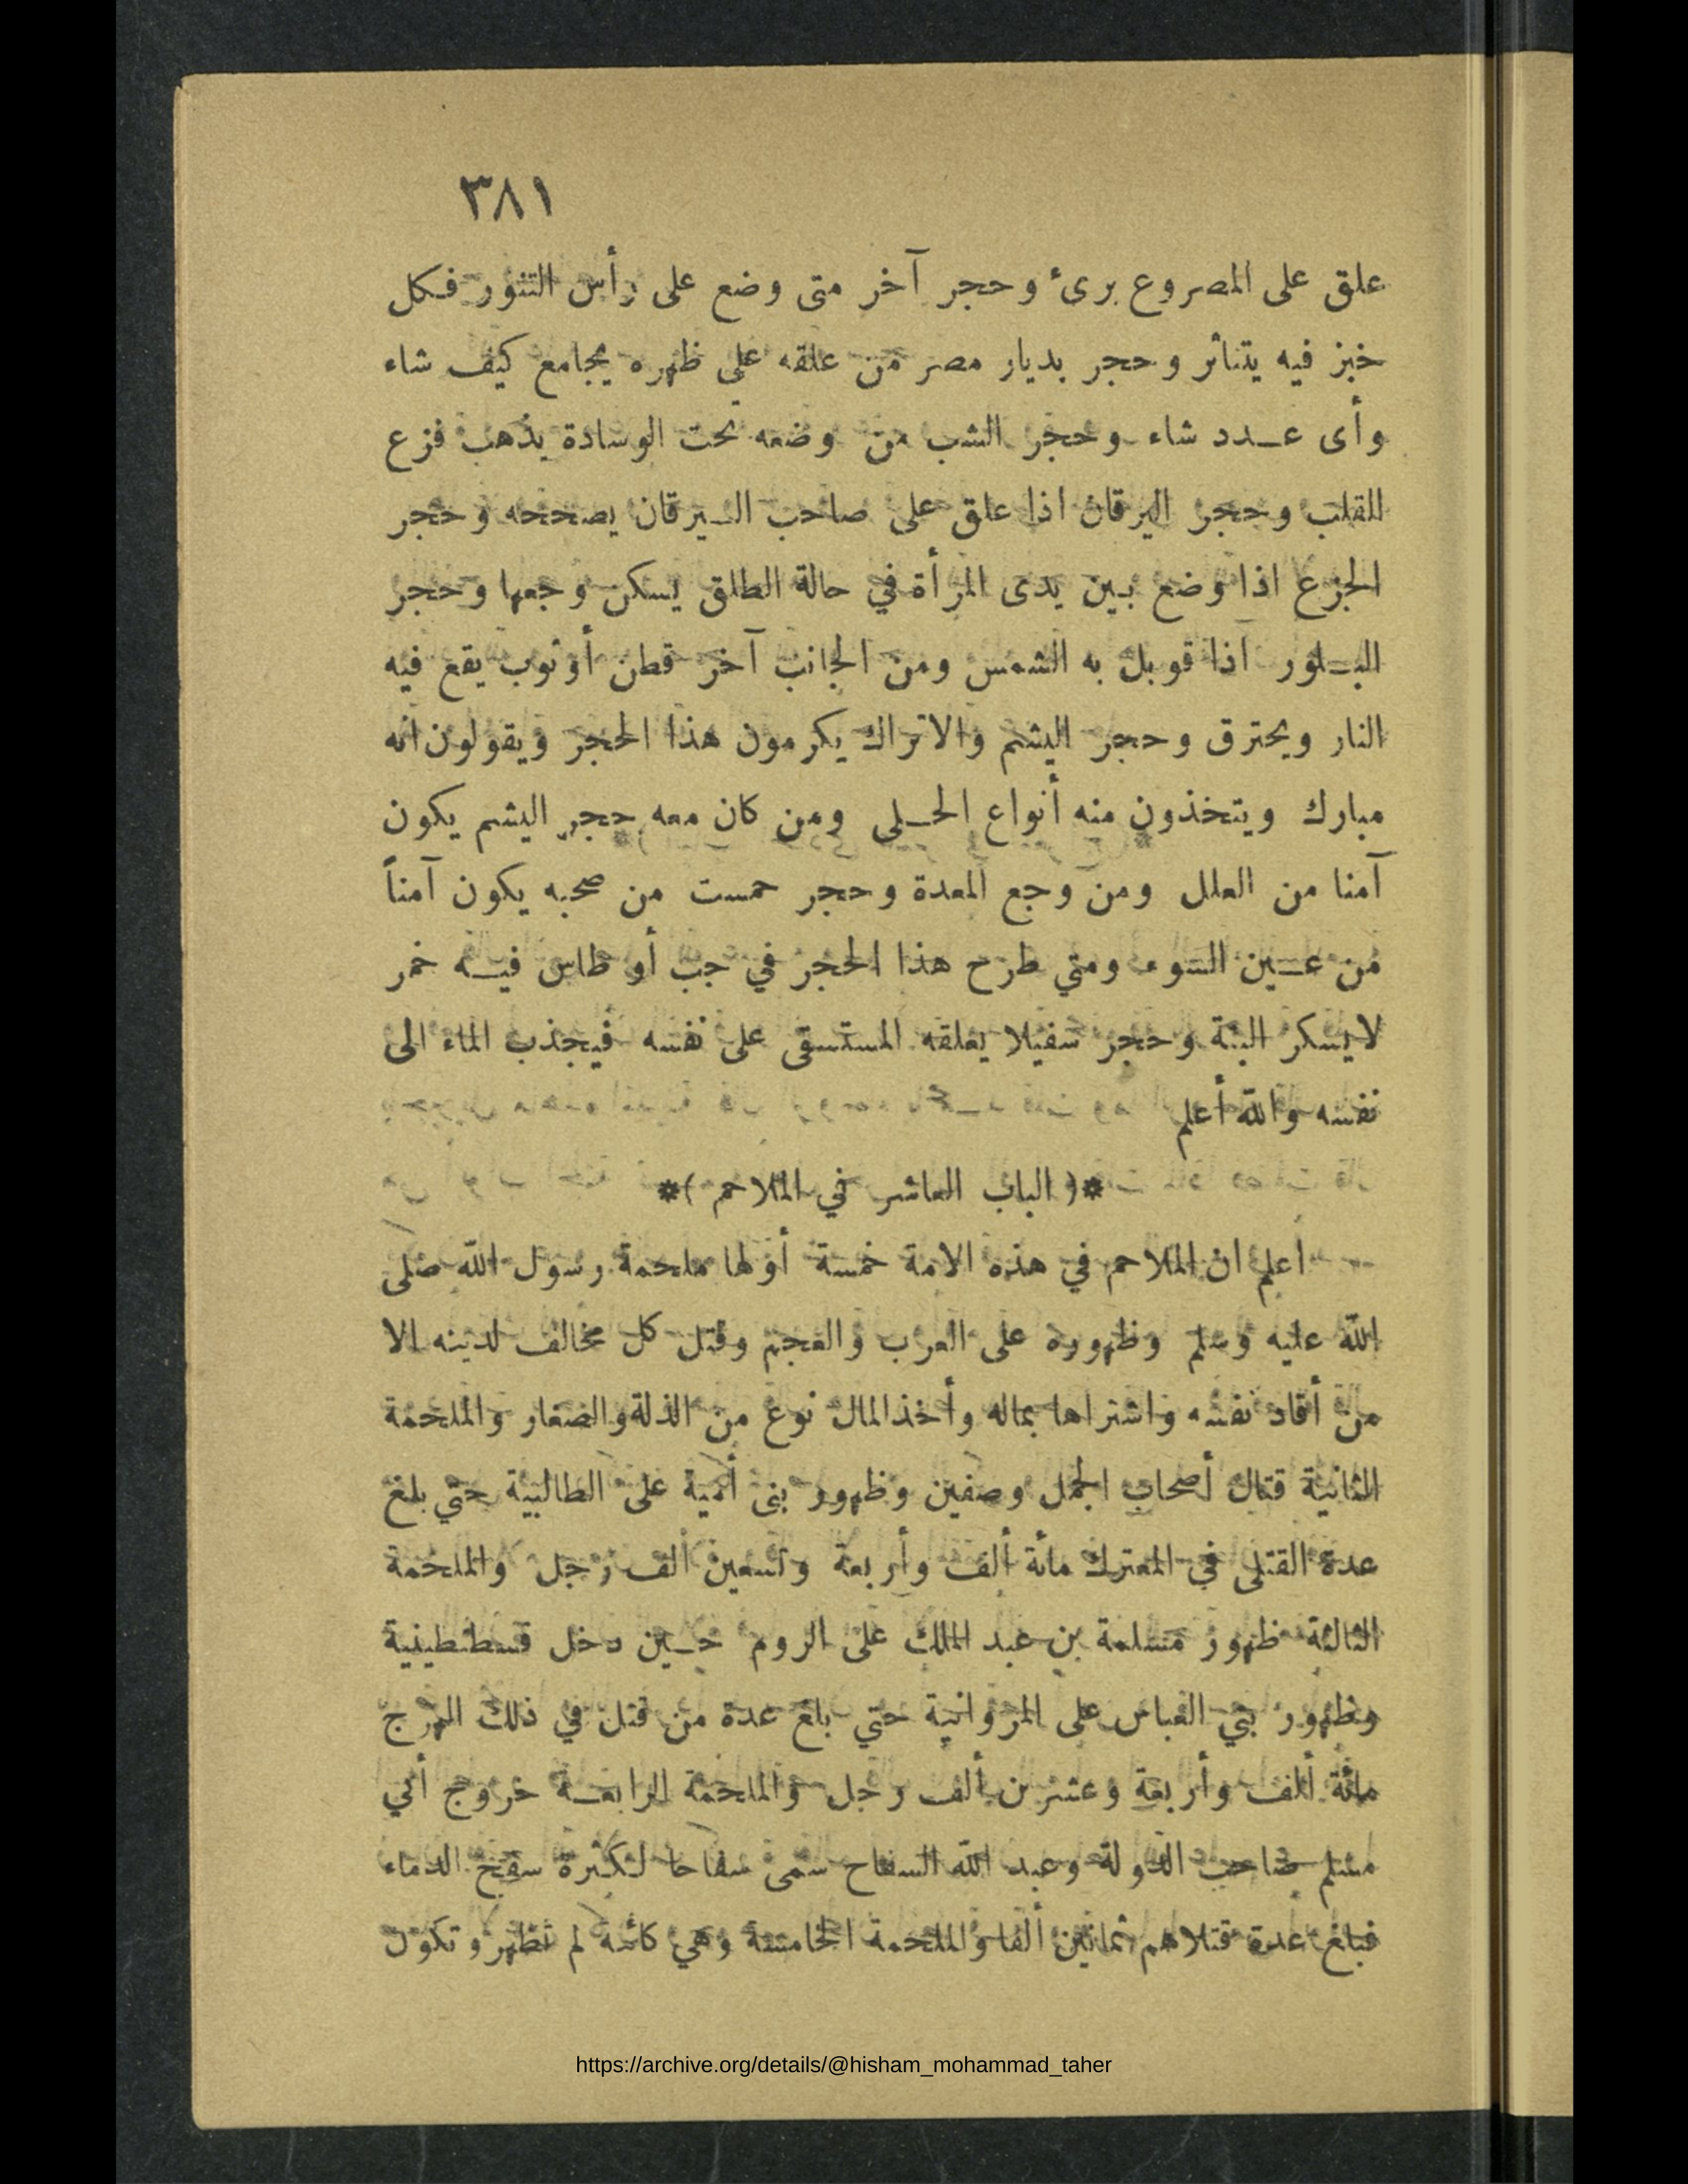 ٣٨١
علق على المصروع برئ وحجر آخر متى وضع على رأس التنور فكل
خبز فيه يتناثر وحجر بديار مصر من علقه على ظهره يجامع كيف شاء
وأى عدد شاء وحجر الشب من وضعه تحت الوسادة يذهب فزع
القلب وحجر اليرقان اذا علق على صاحب اليرقان يصححه وحجر
الجزع اذا وضع بين يدى المرأة في حالة الطلق يسكن وجعها وحجر
البلور اذا قوبل به الشمس ومن الجانب آخر قطن أو ثوب يقع فيه
النار ويحترق وحجر اليشم والاتراك يكرمون هذا الحجر ويقولون انه
مبارك ويتخذون منه أنواع الحلى ومن كان معه حجر اليشم يكون
آمنا من العلل ومن وجع المعدة وحجر حمست من صحبه يكون آمناً
من عين السوء ومتي طرح هذا الحجر في جب أو طاس فيه خمر
لايسكر البتة وحجر سفيلا يعلقه المستسقى على نفسه فيجذب الماء الى
نفسه والله أعلم
*( الباب العاشر في الملاحم )*
اعلم ان الملاحم في هذه الامة خمسة أولها ملحمة رسول الله صلى
الله عليه وسلم وظهوره على العرب والعجم وقتل كل مخالف لدينه الا
من أقاد نفسه واشتراها بماله وأخذ المال نوع من الذلة والصغار والملحمة
الثانية قتال أصحاب الجمل وصفين وظهور بنى أمية على الطالبية حتي بلغ
عدة القتلى في المعترك مائة ألف وأربعة وتسعين ألف رجل والملحمة
الثالثة ظهور مسلمة بن عبد الملك على الروم حين دخل قسطنطينية
وظهور بني العباس على المروانية حتي بلغ عدة من قتل في ذلك الهرج
مائة ألف وأربعة وعشرين ألف رجل والملحمة الرابعة خروج أبي
مسلم صاحب الدولة وعبد الله السفاح سمى سفاحا لكثرة سفح الدماء
فبلغ عدة قتلاهم ثمانين ألفا والملحمة الخامسة وهي كائنة لم تظهر وتكون
https://archive.org/details/@hisham_mohammad_taher